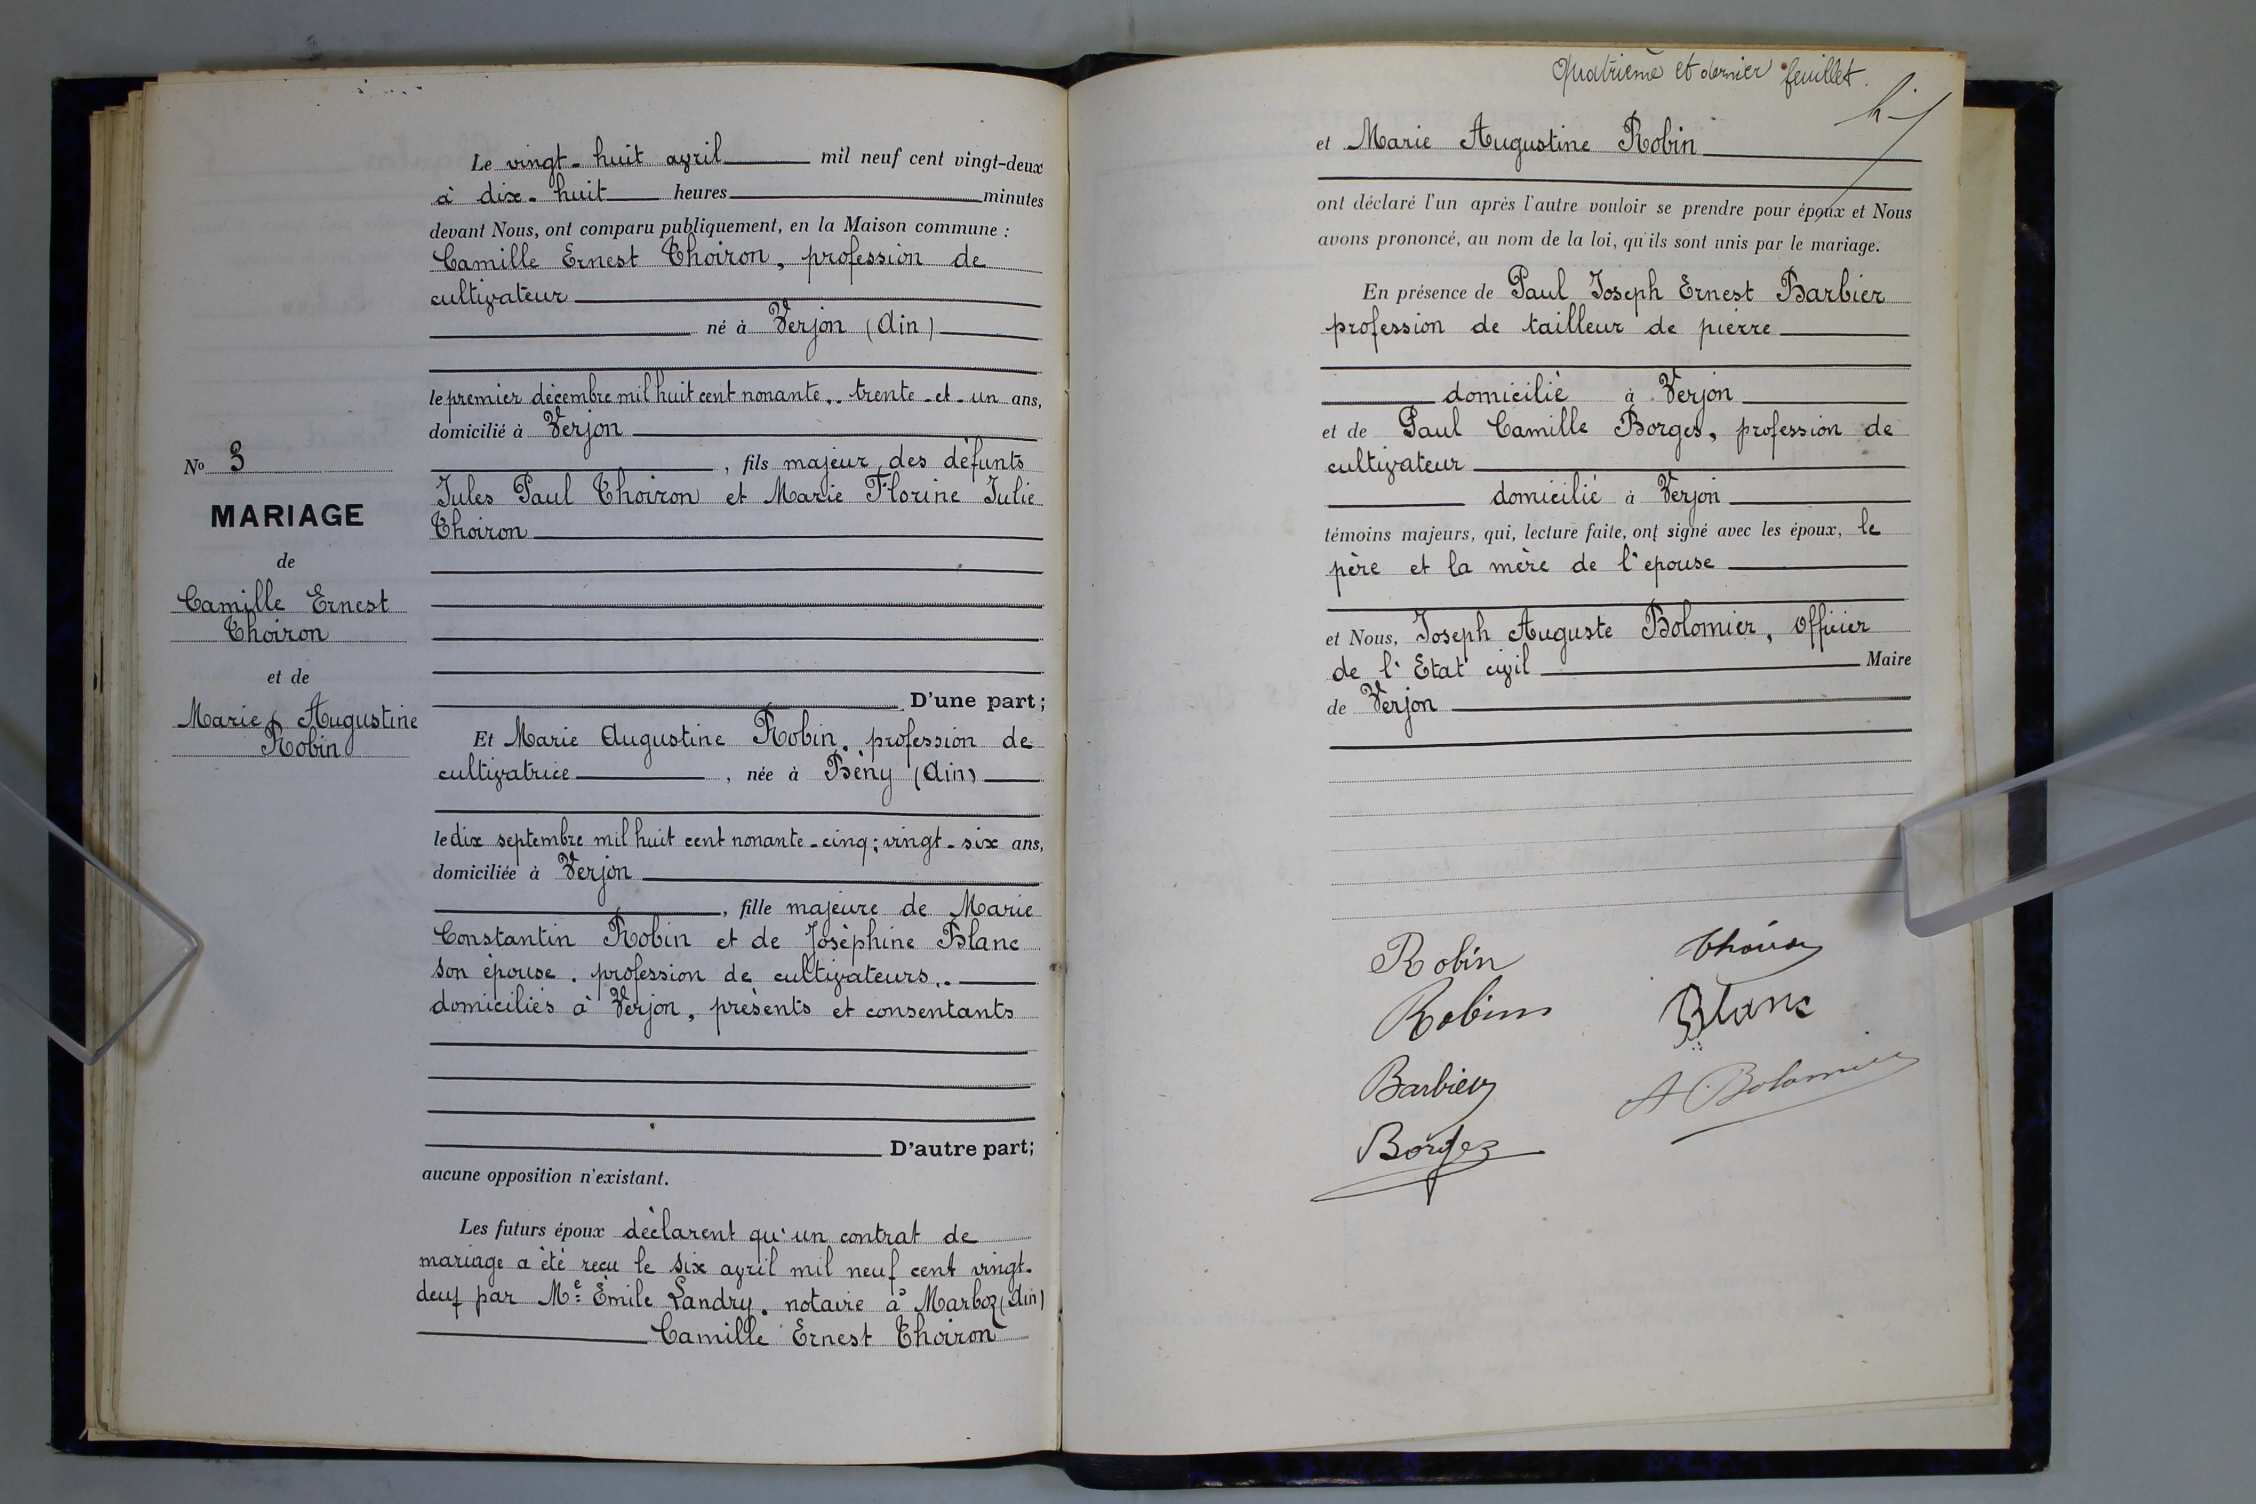 Le vingt-huit avril mil neuf cent vingt-deux
à dix-huit heures minutes
devant Nous, ont comparu publiquement, en la Maison commune :
Camille Ernest Thoiron, profession de
cultivateur
né à Verjon (Ain)
le premier décembre mil huit cent nonante, trente-et-un ans,
domicilié à Verjon
, fils majeur des défunts
Jules Paul Thoiron et Marie Florine Julie
Thoiron
No 3
MARIAGE
de
Camille Ernest
Thoiron
et de
Marie Augustine
Robin
D'une part;
Et Marie Augustine Robin, profession de
cultivatrice, née à Bény (Ain)
le dix septembre mil huit cent nonante-cinq; vingt-six ans,
domiciliée à Verjon
, fille majeure de Marie
Constantin Robin et de Joséphine Blanc
son épouse, profession de cultivateurs,
domiciliés à Verjon, présents et consentants
D'autre part;
aucune opposition n'existant.
Les futurs époux déclarent qu'un contrat de
mariage a été reçu le six avril mil neuf cent vingt-
deux par Me Émile Landry, notaire à Marboz (Ain)
Camille Ernest Thoiron
Quatrième et dernier feuillet.
et Marie Augustine Robin
ont déclaré l'un après l'autre vouloir se prendre pour époux et Nous
avons prononcé, au nom de la loi, qu'ils sont unis par le mariage.
En présence de Paul Joseph Ernest Barbier
profession de tailleur de pierre
domicilié à Verjon
et de Paul Camille Borges, profession de
cultivateur
domicilié à Verjon
témoins majeurs, qui, lecture faite, ont signé avec les époux, le
père et la mère de l'épouse
et Nous, Joseph Auguste Bolomier, officier
de l'Etat civil Maire
de Verjon
Robin Thoiron
Robin Blanc
Barbier A. Bolomier
Borges